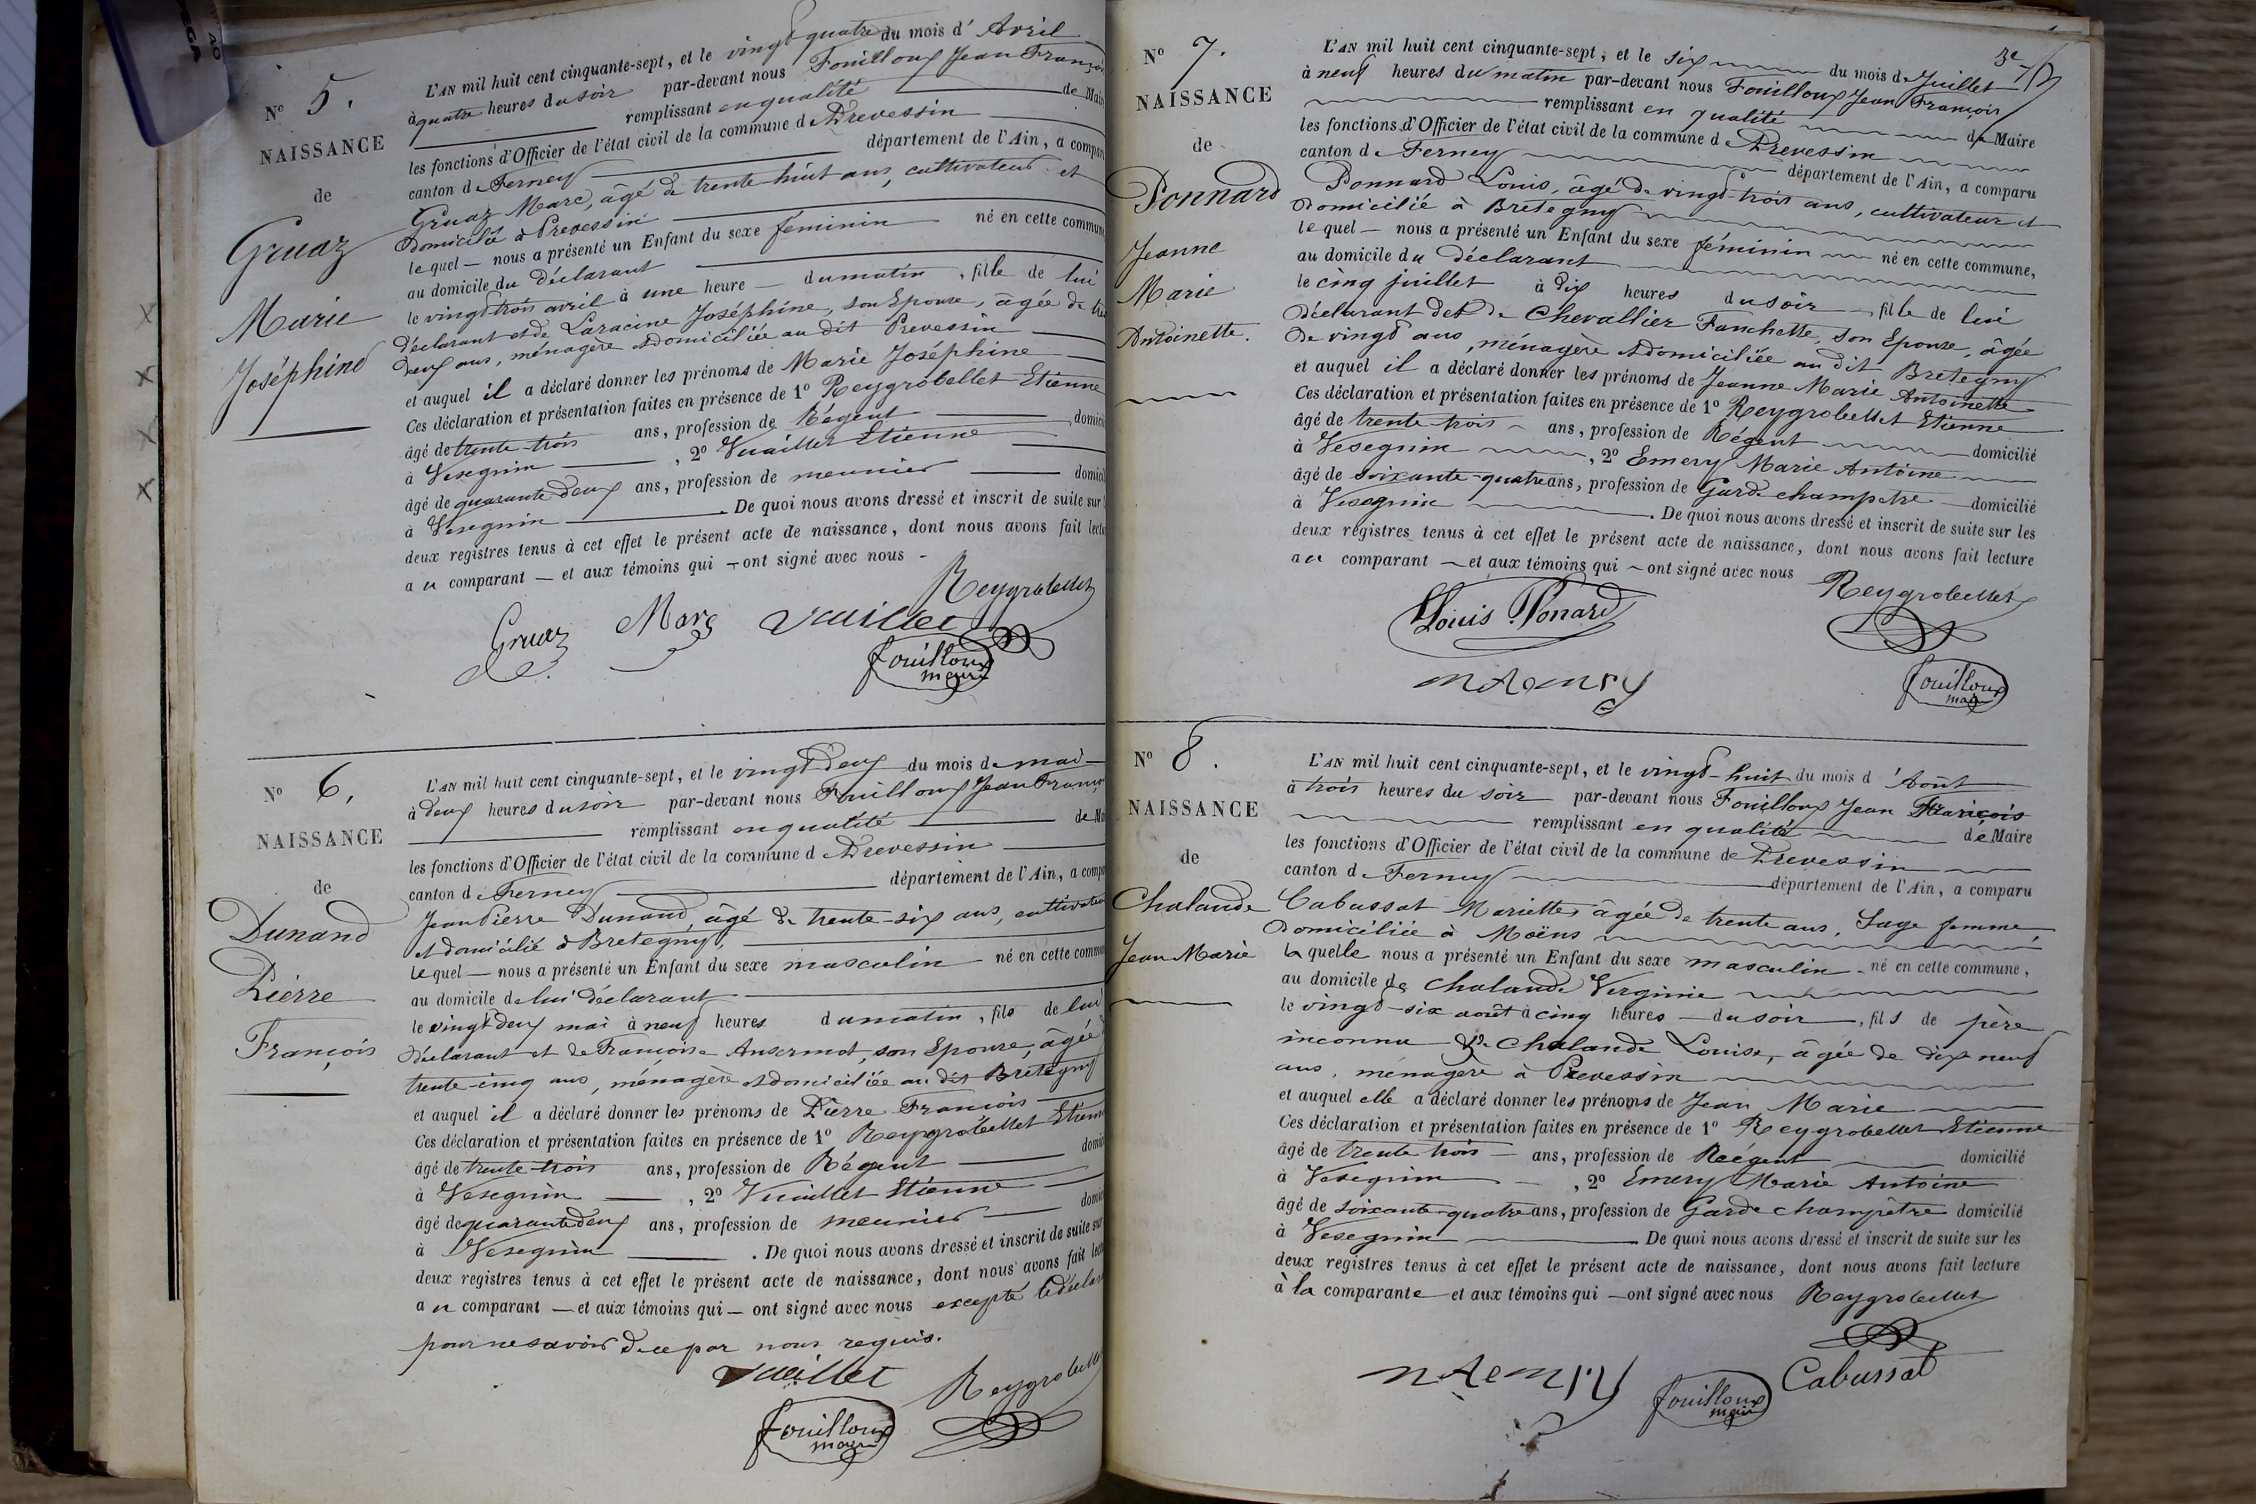 N° 5.
NAISSANCE
de
Gruaz
Marie
Joséphine
L'AN mil huit cent cinquante-sept, et le vingt quatre du mois d'Avril
à quatre heures du soir par-devant nous Fouilloux Jean François
remplissant en qualité de Maire
les fonctions d'Officier de l'état civil de la commune d Prevessin
canton de Ferney département de l'Ain, a comparu
Gruaz Marc, âgé de trente huit ans, cultivateur et
domicilié à Prevessin
lequel nous a présenté un Enfant du sexe féminin né en cette commune
au domicile du déclarant
le vingt trois avril à une heure du matin, fille de lui
déclarant et de Laracine Joséphine, son Epouse, âgée de
deux ans, ménagère et domiciliée au dit Prevessin
et auquel il a déclaré donner les prénoms de Marie Joséphine
Ces déclaration et présentation faites en présence de 1° Reygrobellet Etienne
âgé de trente-trois ans, profession de Régent domicil
à Vesegnin, 2° Vuaillet Etienne
âgé de quarante deux ans, profession de meunier domicil
à Vesegnin. De quoi nous avons dressé et inscrit de suite sur
deux registres tenus à cet effet le présent acte de naissance, dont nous avons fait lectu
au comparant et aux témoins qui ont signé avec nous
Reygrobellet
Gruaz Marc Vuillet
Fouilloux
maire
N° 6.
NAISSANCE
de
Dunand
Pierre
François
L'AN mil huit cent cinquante-sept, et le vingt deux du mois de mai
à deux heures du soir par-devant nous Fouilloux Jean Franço
remplissant en qualité de Ma
les fonctions d'Officier de l'état civil de la commune d Prevessin
canton de Ferney département de l'Ain, a compa
Jean Pierre Dunand, âgé de trente-six ans, cultivateur
et domicilié à Bretegny,
lequel nous a présenté un Enfant du sexe masculin né en cette commun
au domicile de lui déclarant
le vingt deux mai à neuf heures du matin, fils de lui
déclarant et de Françoise Ansermot, son Epouse, âgée
trente-cinq ans, ménagère et domiciliée au dit Bretegny
et auquel il a déclaré donner les prénoms de Pierre François
Ces déclaration et présentation faites en présence de 1° Reygrobellet Etienn
âgé de trente-trois ans, profession de Régent domici
à Vesegnin, 2° Vuaillet Etienne
âgé de quarante deux ans, profession de meunier domici
à Vesegnin. De quoi nous avons dressé et inscrit de suite sur
deux registres tenus à cet effet le présent acte de naissance, dont nous avons fait lect
au comparant et aux témoins qui ont signé avec nous excepté le déclar
pour ne savoir de ce par nous requis.
Vuillet
Reygrobellet
Fouilloux
maire
N° 7.
NAISSANCE
de
Ponnard
Jeanne
Marie
Antoinette.
L'AN mil huit cent cinquante-sept, et le six du mois de Juillet
à neuf heures du matin par-devant nous Fouilloux Jean François
remplissant en qualité de Maire
les fonctions d'Officier de l'état civil de la commune d Prevessin
canton de Ferney département de l'Ain, a comparu
Ponnard Louis, âgé de vingt-trois ans, cultivateur et
domicilié à Bretegny
lequel nous a présenté un Enfant du sexe féminin né en cette commune,
au domicile du déclarant
le cinq juillet à dix heures du soir fille de lui
déclarant et de Chevallier Fanchette, son Epouse, âgée
de vingt ans, ménagère et domiciliée au dit Bretegny
et auquel il a déclaré donner les prénoms de Jeanne Marie Antoinette
Ces déclaration et présentation faites en présence de 1° Reygrobellet Etienne
âgé de trente trois ans, profession de Régent domicilié
à Vesegnin, 2° Emery Marie Antoine
âgé de soixante-quatre ans, profession de Garde champetre domicilié
à Vesegnin. De quoi nous avons dressé et inscrit de suite sur les
deux registres tenus à cet effet le présent acte de naissance, dont nous avons fait lecture
au comparant et aux témoins qui ont signé avec nous
Reygrobellet
Louis Ponard
M A Emry
Fouilloux
maire
N° 8.
NAISSANCE
de
Chalande
Jean Marie
L'AN mil huit cent cinquante-sept, et le vingt-huit du mois d'Août
à trois heures du soir par-devant nous Fouilloux Jean François
remplissant en qualité de Maire
les fonctions d'Officier de l'état civil de la commune de Prevessin
canton d Ferney département de l'Ain, a comparu
Cabussat Mariette, âgée de trente ans, Sage femme,
domiciliée à Moëns
laquelle nous a présenté un Enfant du sexe masculin né en cette commune,
au domicile de Chalande Verginie
le vingt-six août à cinq heures du soir, fils de père
inconnu & de Chalande Louise, âgée de dix neuf
ans, ménagère à Prevessin
et auquel elle a déclaré donner les prénoms de Jean Marie
Ces déclaration et présentation faites en présence de 1° Reygrobellet Etienne
âgé de trente trois ans, profession de Régent domicilié
à Vesegnin, 2° Emery Marie Antoine
âgé de soixante-quatre ans, profession de Garde champêtre domicilié
à Vesegnin. De quoi nous avons dressé et inscrit de suite sur les
deux registres tenus à cet effet le présent acte de naissance, dont nous avons fait lecture
à la comparante et aux témoins qui ont signé avec nous
Reygrobellet
M A Emry
Fouilloux
maire
Cabussat